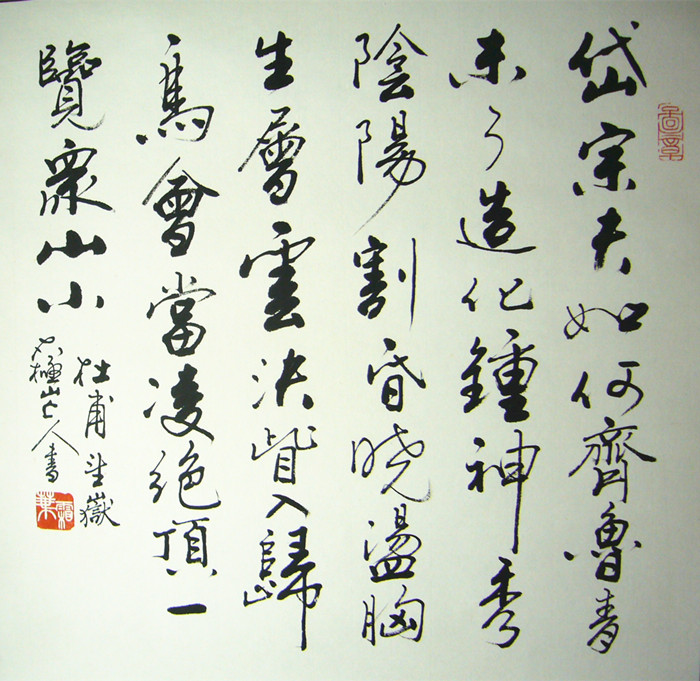 岱宗夫如何齊魯青
未了造化鍾神秀
陰陽割昏晓盪胸
生層雲決眥入歸
鳥會當凌絕頂一
覽衆山小
杜甫望嶽
山人書
霜葉